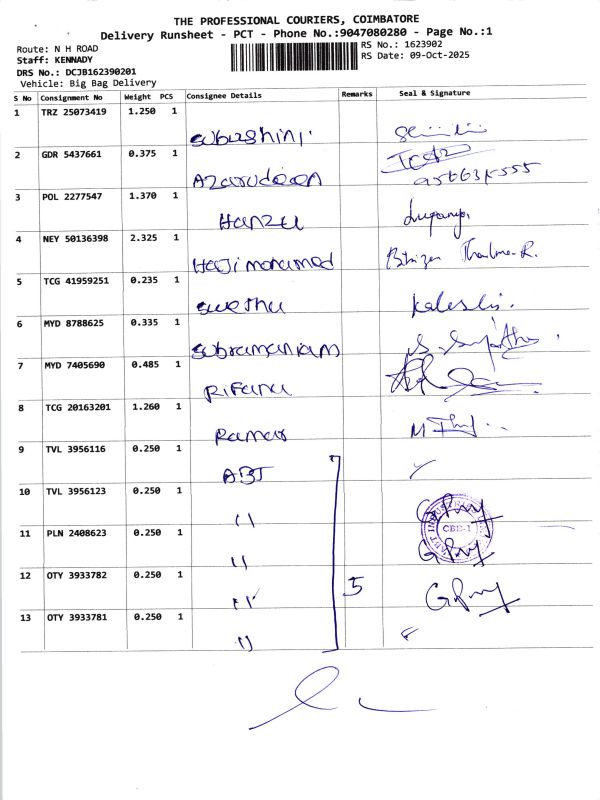 THE PROFESSIONAL COURIERS, COIMBATORE
Delivery Runsheet - PCT - Phone No.:9047080280 - Page No.:1
Route: N H ROAD
RS No.: 1623902
Staff: KENNADY
RS Date: 09-Oct-2025
DRS No.: DCJB162390201
Vehicle: Big Bag Delivery
S No Consignment No Weight PCS Consignee Details Remarks Seal & Signature
1 TRZ 25073419 1.250 1 Subashini
2 GDR 5437661 0.375 1 Azarudeen
3 POL 2277547 1.370 1 Hanzu
4 NEY 50136398 2.325 1 Haji mohamed
5 TCG 41959251 0.235 1 Swetha
6 MYD 8788625 0.335 1 Subramaniam
7 MYD 7405690 0.485 1 Rifana
8 TCG 20163201 1.260 1
9 TVL 3956116 0.250 1 ABT
10 TVL 3956123 0.250 1 " CBE-1
11 PLN 2408623 0.250 1 "
12 OTY 3933782 0.250 1 " 5
13 OTY 3933781 0.250 1 "